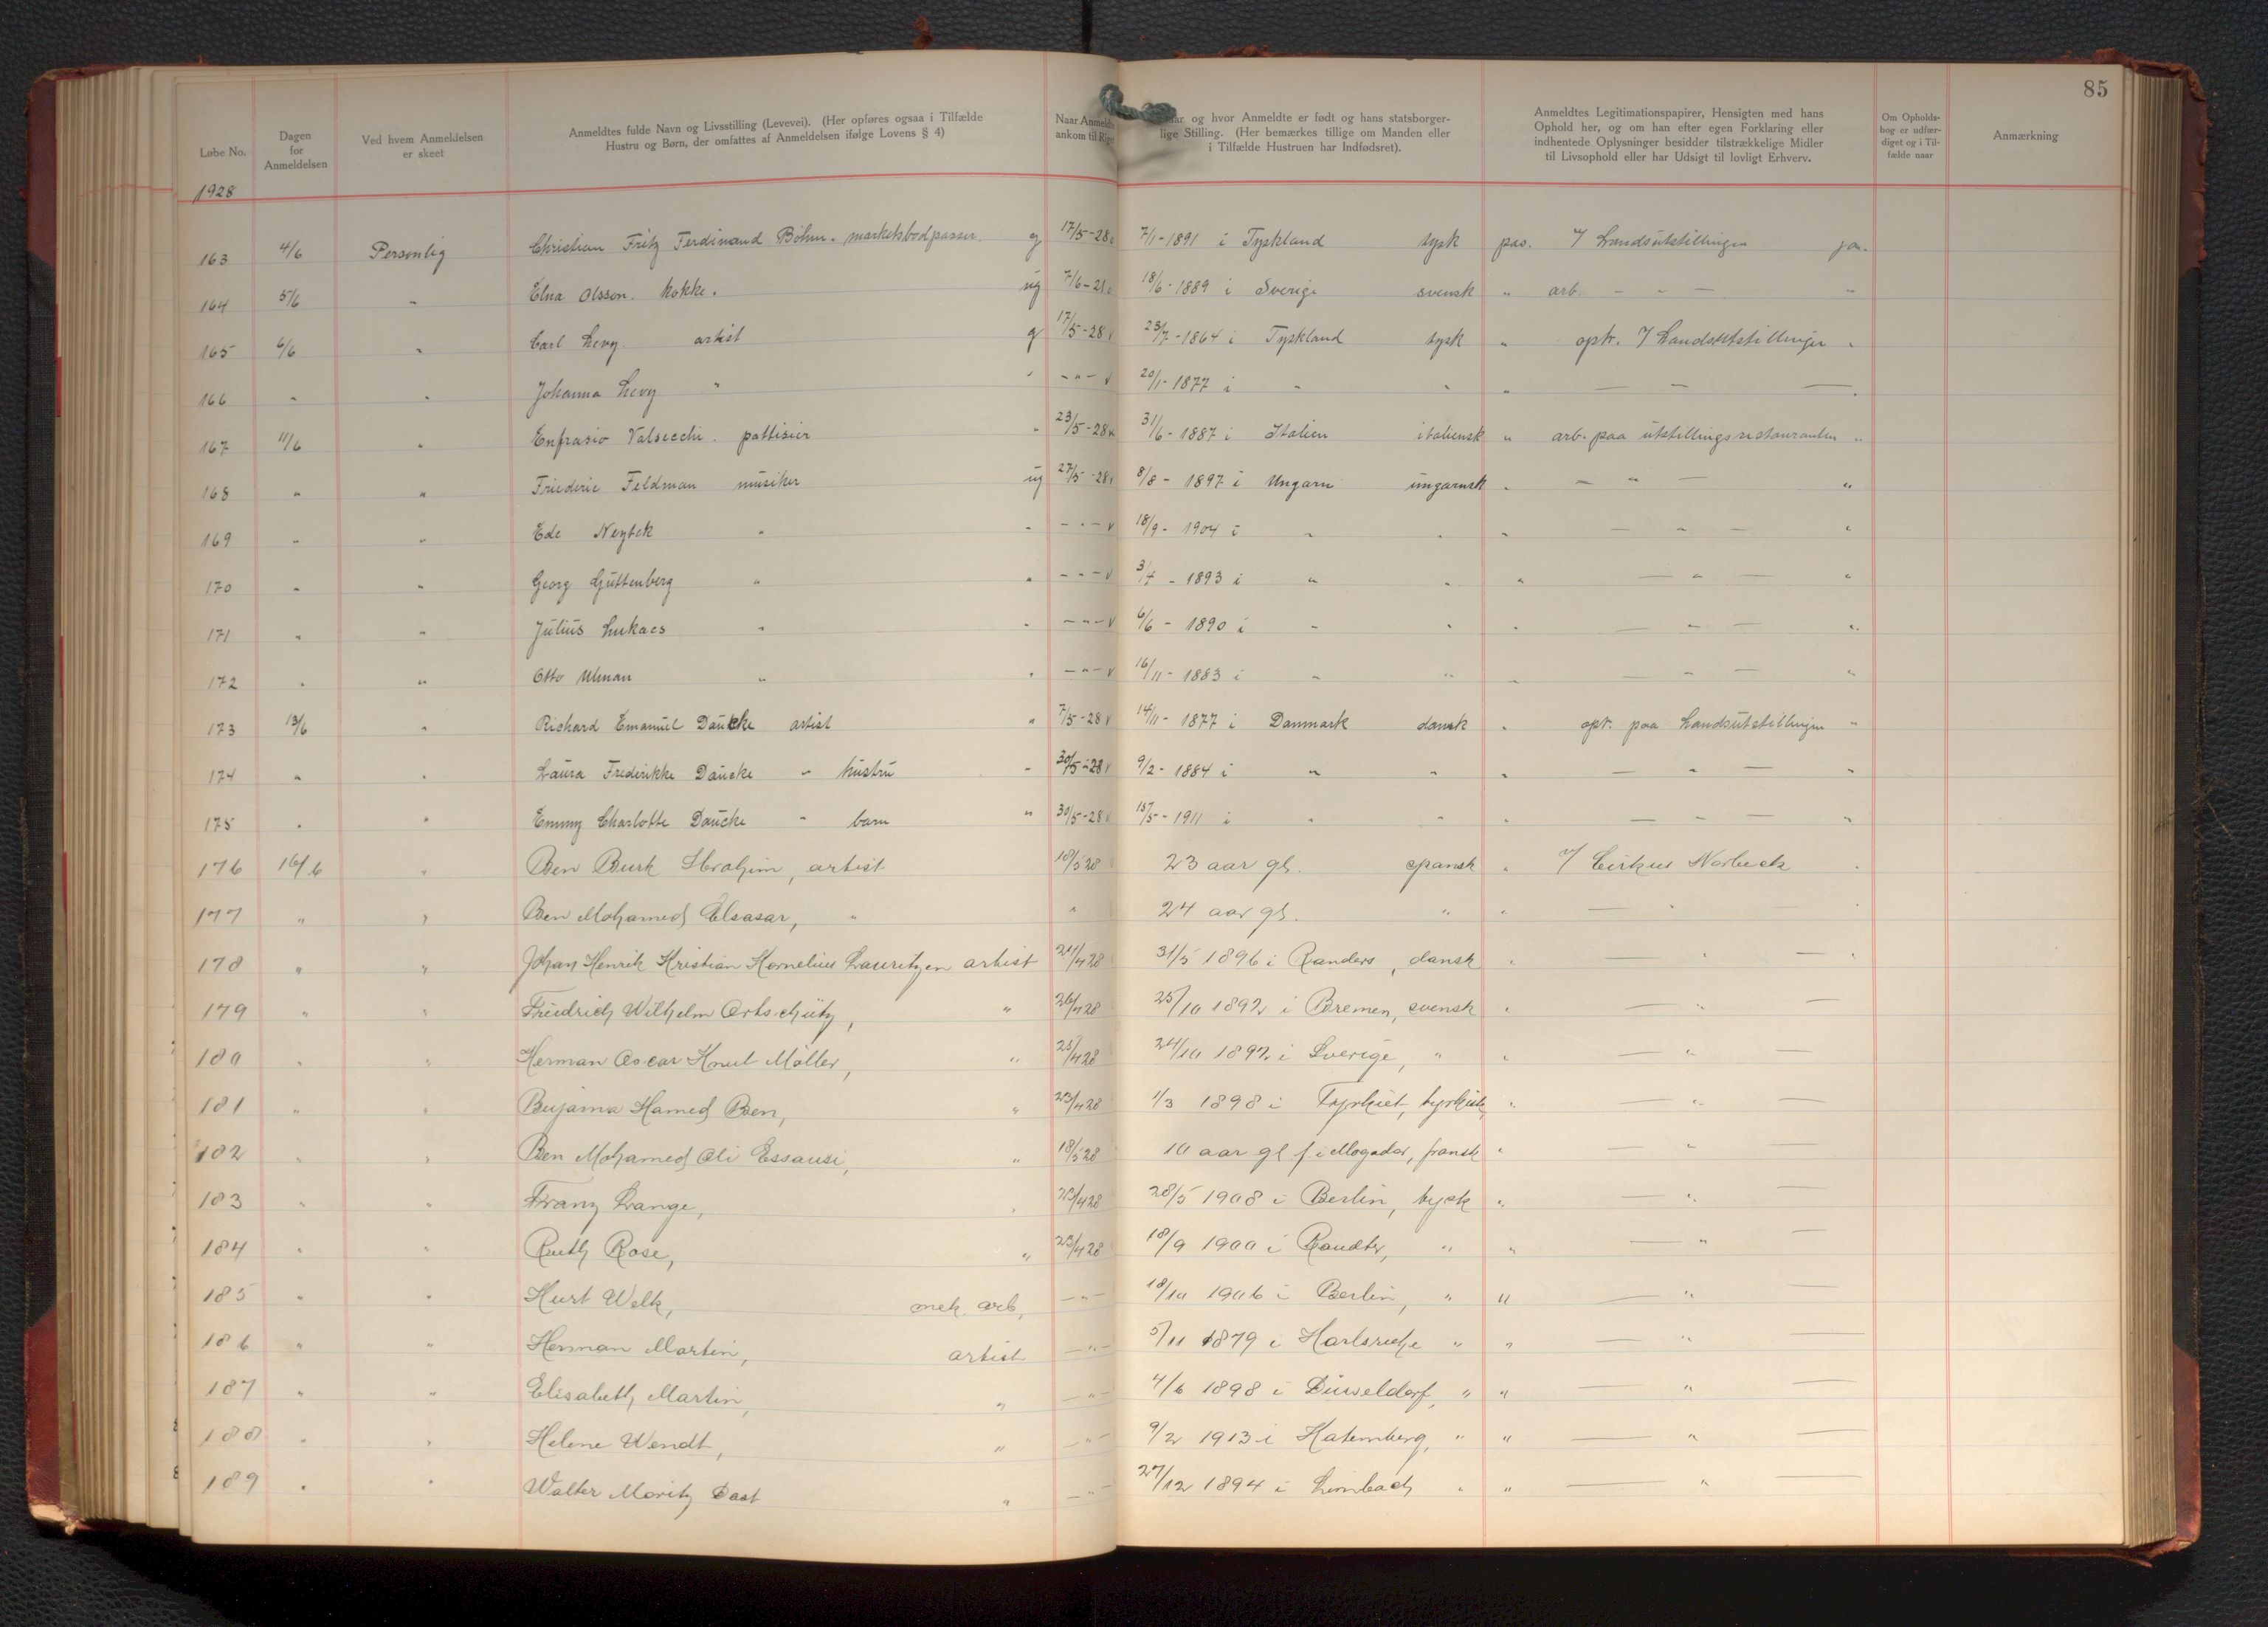 85
Løbe No. | Dagen for Anmeldelsen | Ved hvem Anmeldelsen er skeet | Anmeldtes fulde Navn og Livsstilling (Levevei). (Her opføres ogsaa i Tilfælde Hustru og Børn, der omfattes af Anmeldelsen ifølge Lovens § 4) | Naar Anmeldte ankom til Riget | og hvor Anmeldte er født og hans statsborgerlige Stilling. (Her bemærkes tillige om Manden eller i Tilfælde Hustruen har Indfødsret). | Anmeldtes Legitimationspapirer, Hensigten med hans Ophold her, og om han efter egen Forklaring eller indhentede Oplysninger besidder tilstrækkelige Midler til Livsophold eller har Udsigt til lovligt Erhverv. | Om Opholdsbog er udfærdiget og i Tilfælde naar | Anmærkning
1928
163 4/6 Personlig Christian Fritz Ferdinand Böhm. markedsbodpasser. g 17/5-28 7/1-1891 i Tyskland tysk pas. v/ Landsutstillingen ja.
164 5/6 " Elna Olsson. kokke. ug 7/6-21 18/6-1889 i Sverige svensk " arb. - " - "
165 6/6 " Carl Levy artist g 17/5-28 v 23/7-1864 i Tyskland tysk " optr. v/ Landsutstillingen "
166 " " Johanna Levy " " - " - v 20/1-1877 i " " " — — —
167 11/6 " Enfrasio Valsecchi. pattisier " 23/5-28 v 31/6-1887 i Italien italiensk " arb. paa utstillingsrestauranten "
168 " " Friederic Feldman musiker ug 27/5-28 v 8/8-1897 i Ungarn ungarnsk " — " — "
169 " " Ede Neytek " " - " - v 18/9-1904 i " " " — " — "
170 " " Georg Guttenberg " " - " - v 3/4-1893 i " " " — " — "
171 " " Julius Lukacs " " - " - v 6/6-1890 i " " " — " — "
172 " " Otto Ulman " " - " - v 16/11-1883 i " " " — " — "
173 13/6 " Richard Emanuel Daucke artist " 7/5-28 v 14/11-1877 i Danmark dansk " optr. paa Landsutstillingen "
174 " " Laura Frederikke Daucke " hustru " 30/5-28 v 9/2-1884 i " " " — " — "
175 " " Emmy Charlotte Daucke " barn " 30/5-28 v 15/5-1911 i " " " — " — "
176 16/6 " Ben Burk Ibrahim, artist 18/5 28 23 aar gl. spansk " v/ Cirkus Norbeck "
177 " " Ben Mohamed Elsasar, " " 24 aar gl. " " — " — "
178 " " Johan Henrik Kristian Kornelius Lauritzen artist 24/4 28 31/5 1896 i Randers, dansk " — " — "
179 " " Friedrich Wilhelm Ortschütz, " 26/4 28 25/10 1892 i Bremen, svensk " — " —
180 " " Herman Oscar Knut Möller, " 25/4 28 24/10 1892 i Sverige, " " — " —
181 " " Bujama Hamed Ben, " 23/4 28 1/3 1898 i Tyrkiet, tyrkisk, " — " —
182 " " Ben Mohamed Ali Essausi, " 18/5 28 10 aar gl f. i Mogador, fransk " — " —
183 " " Franz Lange, " 23/4 28 28/5 1908 i Berlin, tysk " — " —
184 " " Ruth Rose, " 23/4 28 18/9 1900 i Randts, " " — " —
185 " " Kurt Welk, mek. arb, - " - 18/10 1906 i Berlin, " " — " —
186 " " Herman Martin, artist - " - 5/11 1879 i Karlsruhe " " — " —
187 " " Elisabeth Martin, " - " - 4/6 1898 i Düsseldorf, " " — " —
188 " " Helene Wendt, " - " - 9/2 1913 i Katernberg, " " — " —
189 " " Walter Moritz Dast " - " - 27/12 1894 i Limbach " " — " —